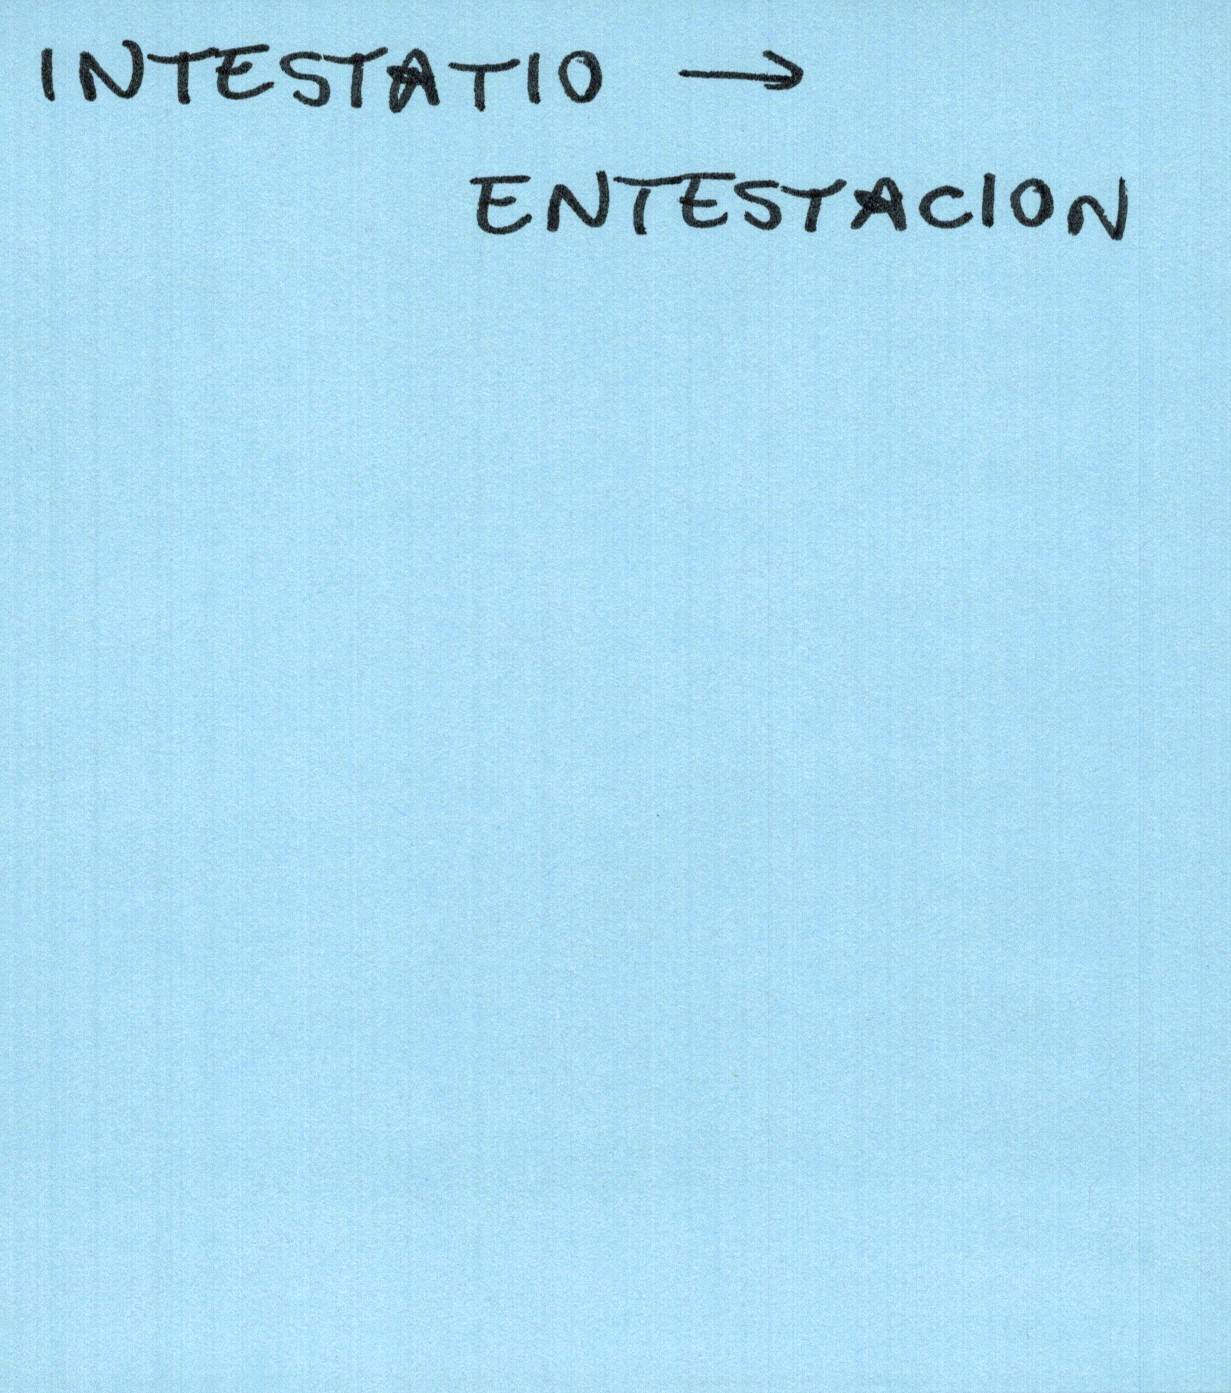 INTESTATIO →
ENTESTACION